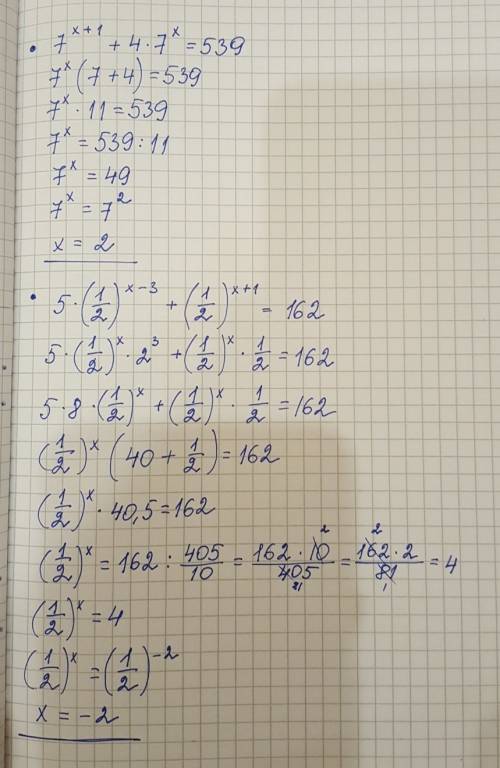 • 7^(x+1) + 4 · 7^x = 539
7^x (7 + 4) = 539
7^x · 11 = 539
7^x = 539 : 11
7^x = 49
7^x = 7^2
x = 2
• 5 · (1/2)^(x-3) + (1/2)^(x+1) = 162
5 · (1/2)^x · 2^3 + (1/2)^x · 1/2 = 162
5 · 8 · (1/2)^x + (1/2)^x · 1/2 = 162
(1/2)^x (40 + 1/2) = 162
(1/2)^x · 40,5 = 162
(1/2)^x = 162 : 405/10 = 162 · 10/405 = 162 · 2/81 = 4
(1/2)^x = 4
(1/2)^x = (1/2)^(-2)
x = -2